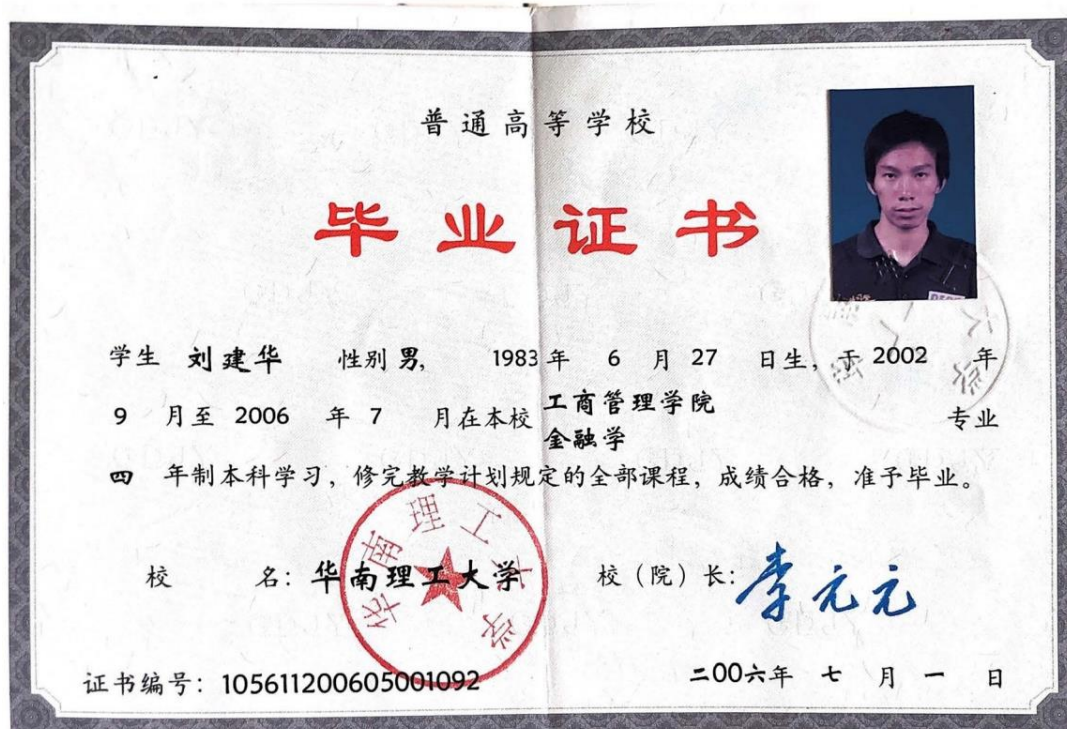 普通高等学校
毕业证书
学生 刘建华 性别 男, 1983 年 6 月 27 日生, 于 2002 年
9 月至 2006 年 7 月在本校 工商管理学院
金融学 专业
四 年制本科学习, 修完教学计划规定的全部课程, 成绩合格, 准予毕业。
华南理工大学
校 名: 华南理工大学 校(院)长: 李元元
证书编号: 105611200605001092 二00六年 七 月 一 日